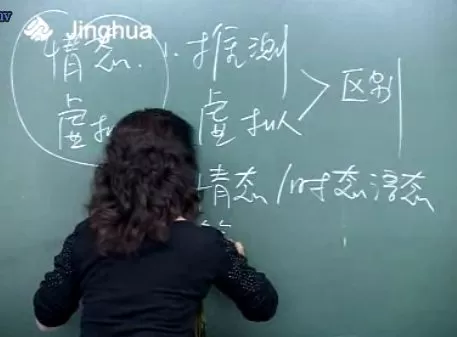 Jinghua
情态. 1. 推测
虚拟 虚拟 > 区别
情态/时态语态